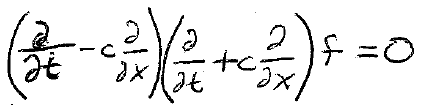 (∂/∂t - c ∂/∂x)(∂/∂t + c ∂/∂x) f = 0